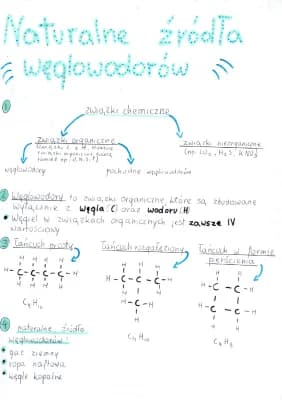 Naturalne źródła
węglowodorów
1
związki chemiczne
związki organiczne
związki nieorganiczne
węglowodory
pochodne węglowodorów
2 Węglowodory to związki organiczne, które są zbudowane
wyłącznie z węgla (C) oraz wodoru (H)
Węgiel w związkach organicznych jest zawsze IV
wartościowy
3 Łańcuch prosty
Łańcuch rozgałęziony
Łańcuch w formie
pierścienia
H H H H
H-C-C-C-C-H
H H H H
C4H10
C4H10
C4H8
4 naturalne źródła
węglowodorów:
gaz ziemny
ropa naftowa
węgle kopalne